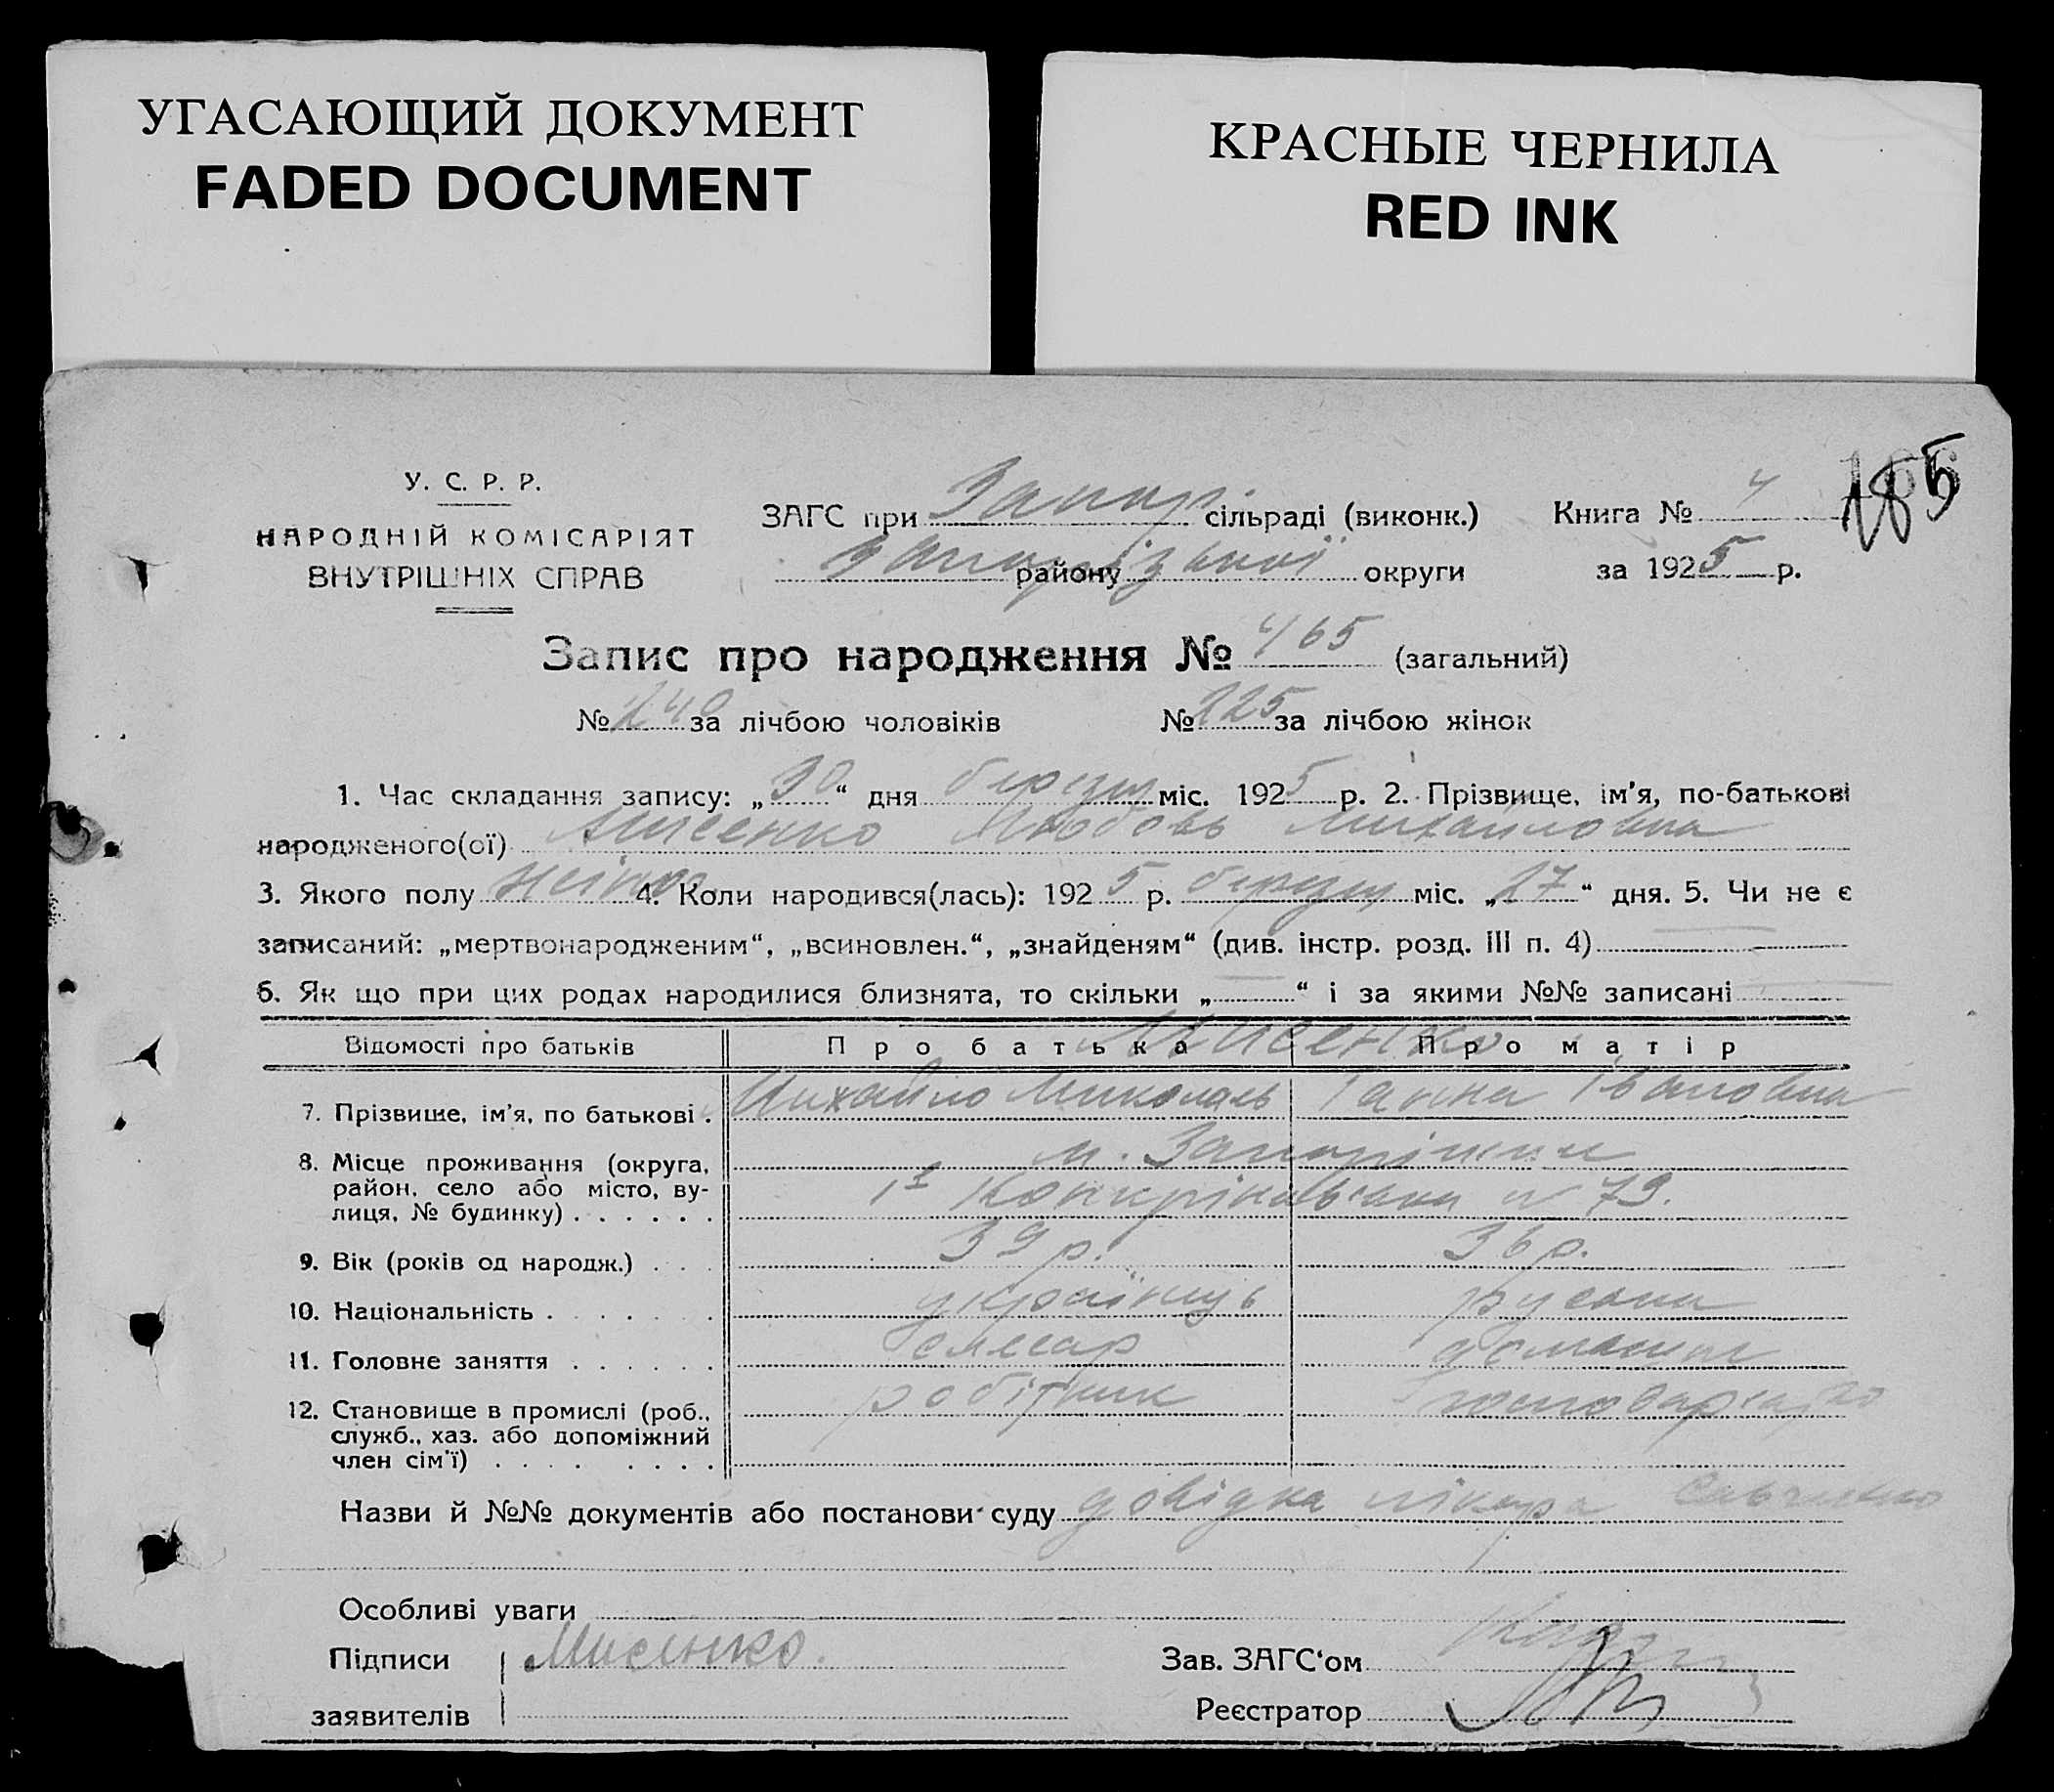 УГАСАЮЩИЙ ДОКУМЕНТ
FADED DOCUMENT
КРАСНЫЕ ЧЕРНИЛА
RED INK
У. С. Р. Р.
НАРОДНІЙ КОМІСАРІЯТ
ВНУТРІШНІХ СПРАВ
ЗАГС при Запор. сільраді (виконк.)
району Запорізької округи
Книга № 4
за 1925 р.
185
Запис про народження № 465 (загальний)
№ 240 за лічбою чоловіків № 225 за лічбою жінок
1. Час складання запису: „30“ дня березня міс. 1925 р. 2. Прізвище, ім'я, по-батькові
народженого(ої) Лисенко Любовь Михайловна
3. Якого полу жіноч. 4. Коли народився(лась): 1925 р. березня міс. „27“ дня. 5. Чи не є
записаний: „мертвонародженим“, „всиновлен.“, „знайденям“ (див. інстр. розд. III п. 4)
6. Як що при цих родах народилися близнята, то скільки „ “ і за якими №№ записані
Відомості про батьків Про батька Про матір
Лисенко
7. Прізвище, ім'я, по батькові . Михайло Миколаєв Ганна Івановна
8. Місце проживання (округа, м. Запоріжжя
район, село або місто, ву-
лиця, № будинку) . . . . . . № 79.
9. Вік (років од народж.) . . . 39 р. 36 р.
10. Національність . . . . . . . українець руська
11. Головне заняття . . . . . . слесар домашнє
12. Становище в промислі (роб., робітник господарство
служб., хаз. або допоміжний
член сім'ї) . . . . . . . .
Назви й №№ документів або постанови суду довідка лікаря Савченко
Особливі уваги
Підписи Лисенко. Зав. ЗАГС‘ом
заявителів Реєстратор